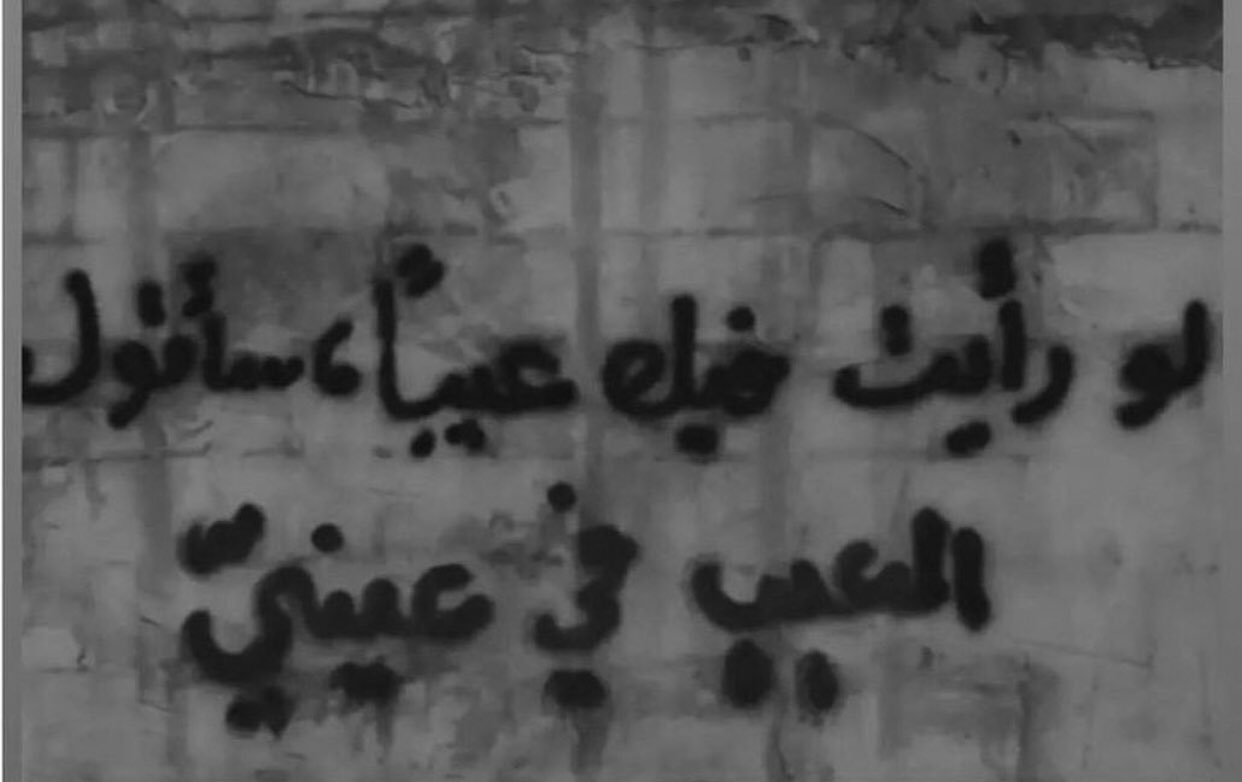 لو رأيت فيك عيباً، سأقول
العيب في عينيّ